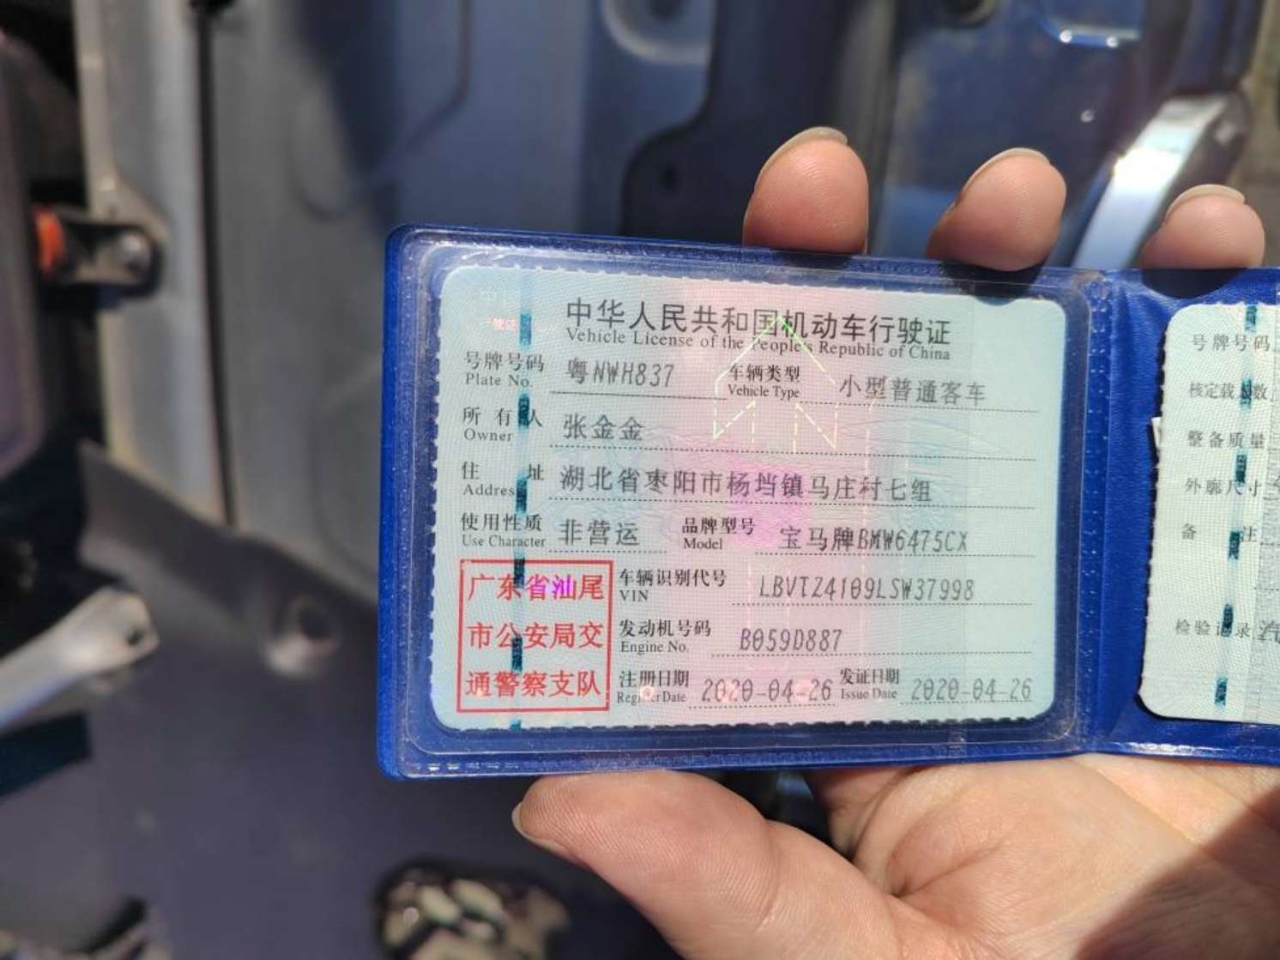 中华人民共和国机动车行驶证
Vehicle License of the People's Republic of China
号牌号码 粤NWH837 车辆类型 小型普通客车
Plate No. Vehicle Type
所有人 张金金
Owner
住址 湖北省枣阳市杨垱镇马庄村七组
Address
使用性质 非营运 品牌型号 宝马牌BMW6475CX
Use Character Model
广东省汕尾
市公安局交
通警察支队
车辆识别代号 LBVTZ4109LSW37998
VIN
发动机号码 B059D887
Engine No.
注册日期 2020-04-26 发证日期 2020-04-26
Register Date Issue Date
号牌号码
核定载人数
整备质量
外廓尺寸
备注
检验记录